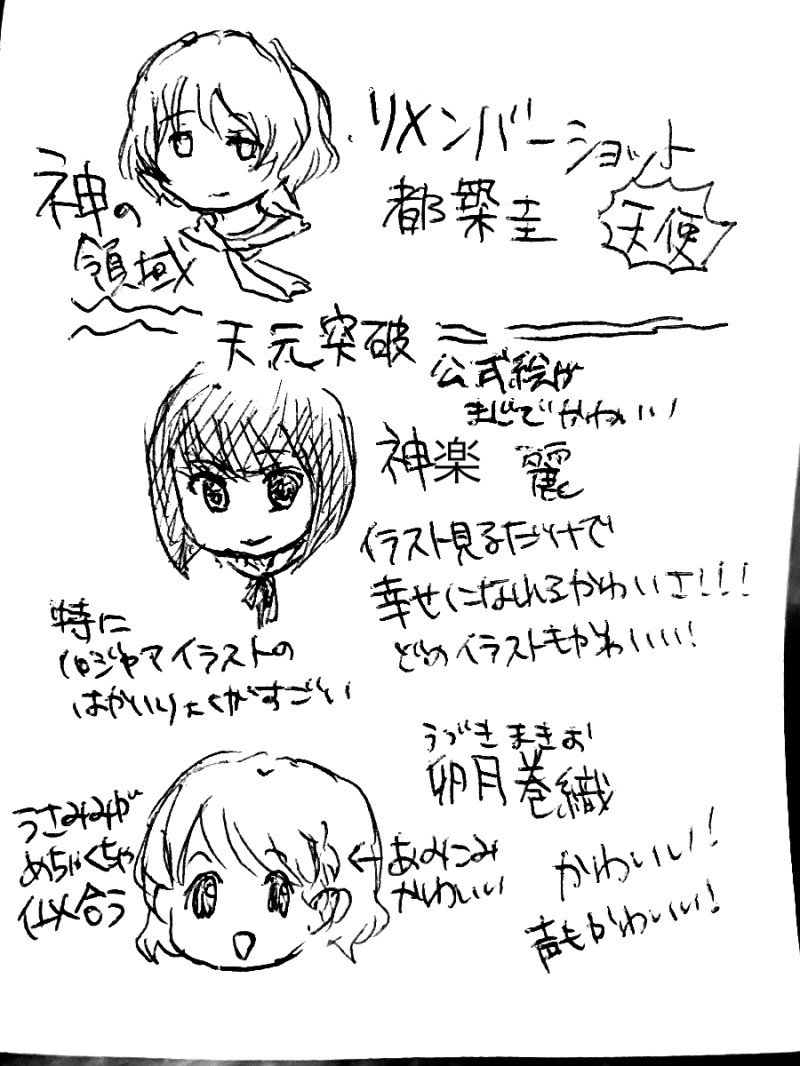 リメンバーショット
都築圭
天使
神の
領域
天元突破
公式絵が
まじでかわいい!
神楽 麗
イラスト見るだけで
幸せになれるかわいさ!!!
どのイラストもかわいい!
特に
パジャマイラストの
はかいりょくがすごい
うづき まきお
卯月巻織
うさみみが
めちゃくちゃ
似合う
←あみこみ
かわいい
かわいい!
声もかわいい!